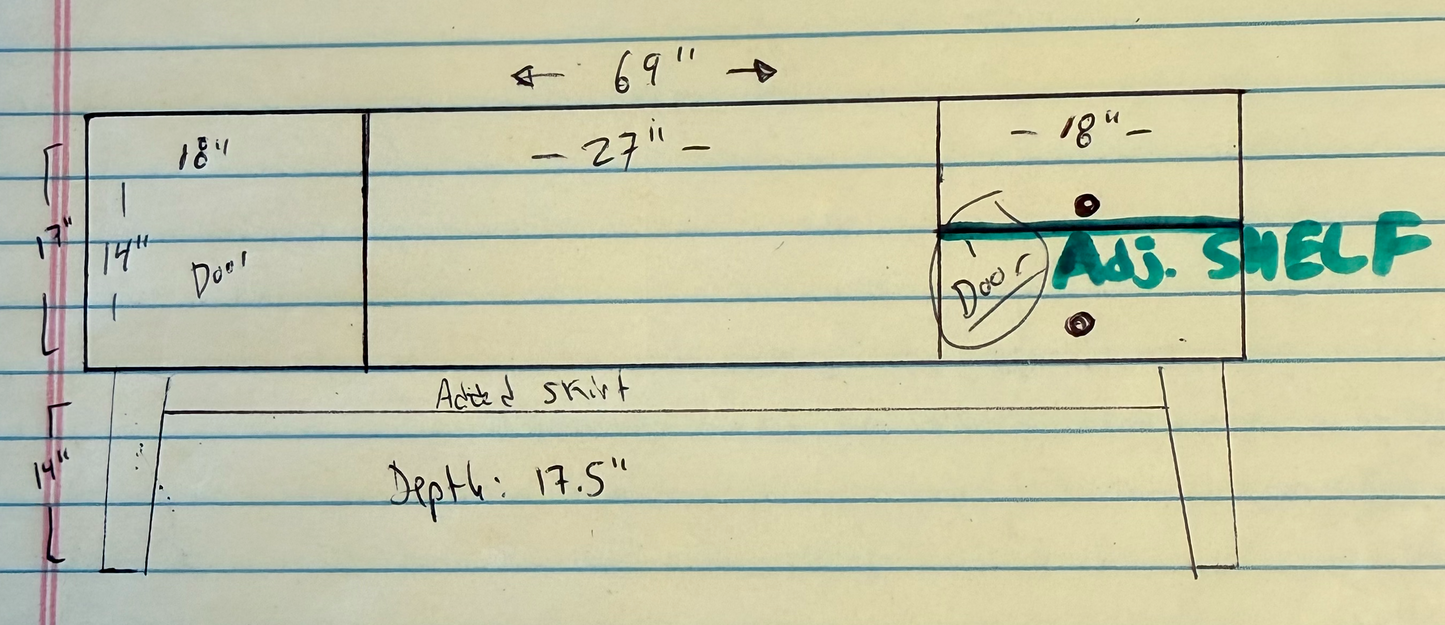 69"
18"
- 27" -
- 18" -
17"
14"
Door
Door
Adj. SHELF
Added skirt
14"
Depth: 17.5"